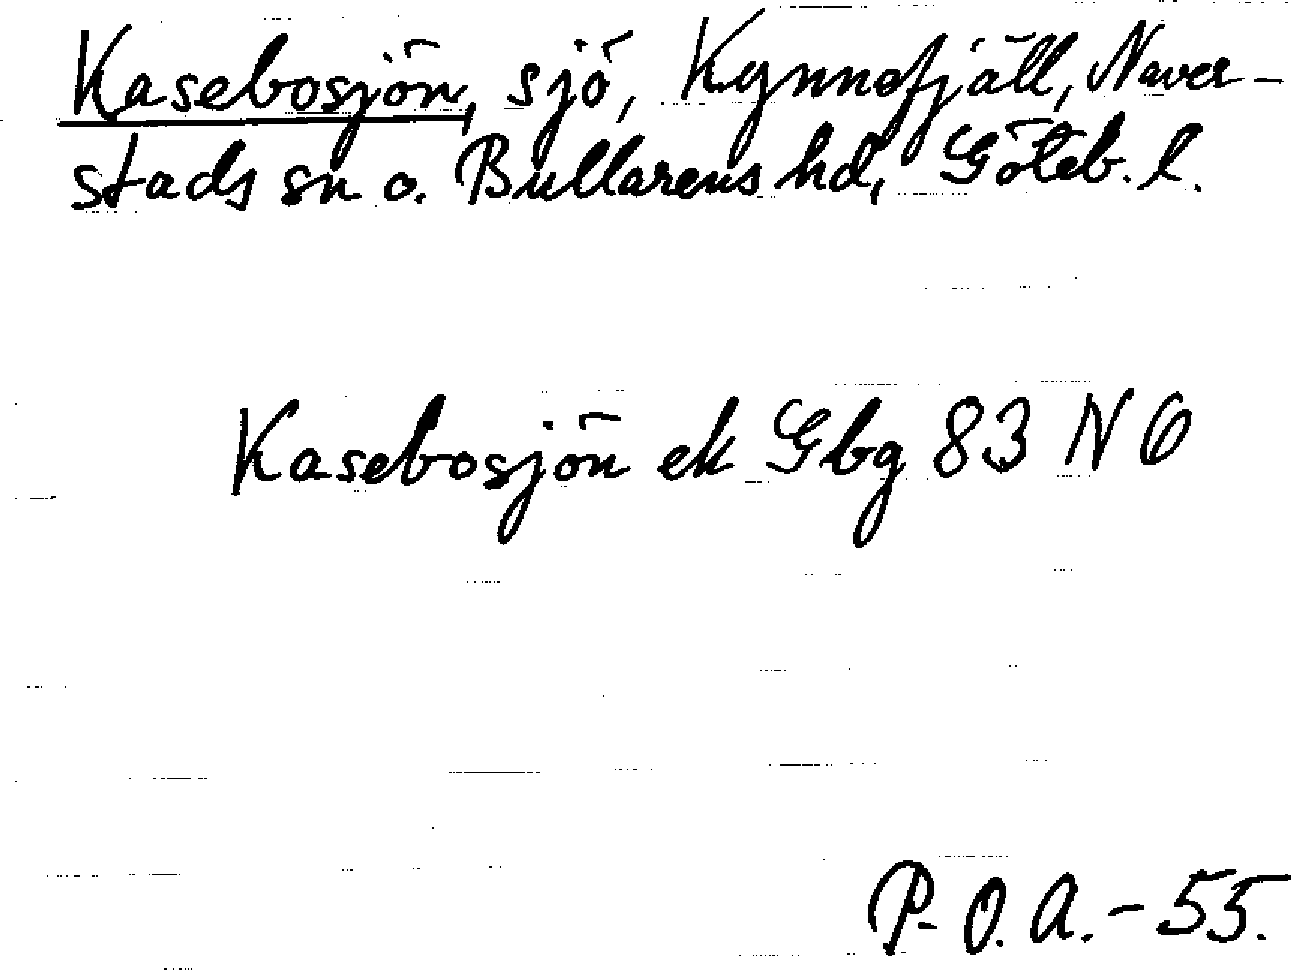 Kasebosjön, sjö, Kynnefjäll, Naver-
stads sn o. Bullarens hd, Göteb. l.
Kasebosjön ek Gbg 83 NO
P-O.A.-55.